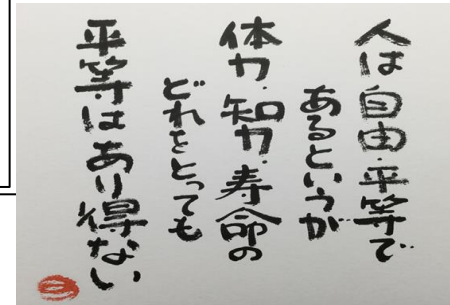 人は自由・平等で
あるというが
体力・知力・寿命の
どれをとっても
平等はあり得ない